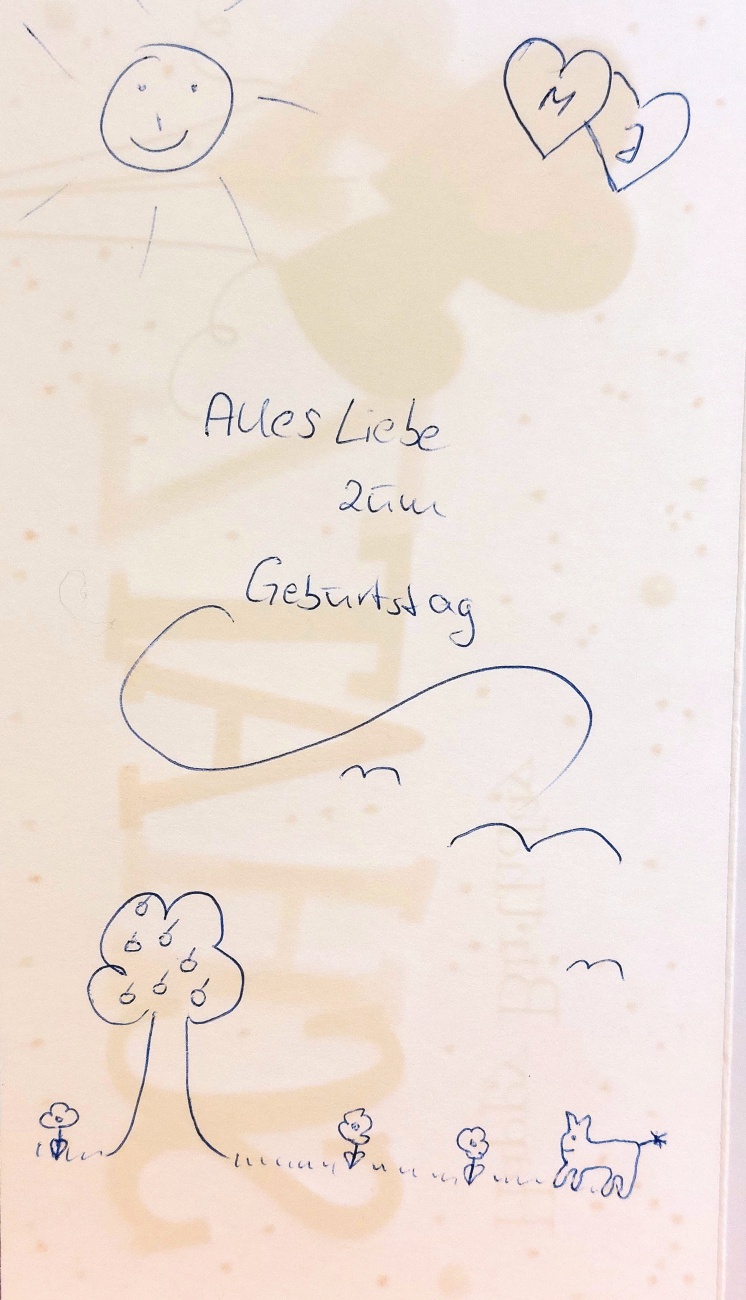 M
J
Alles Liebe
zum
Geburtstag